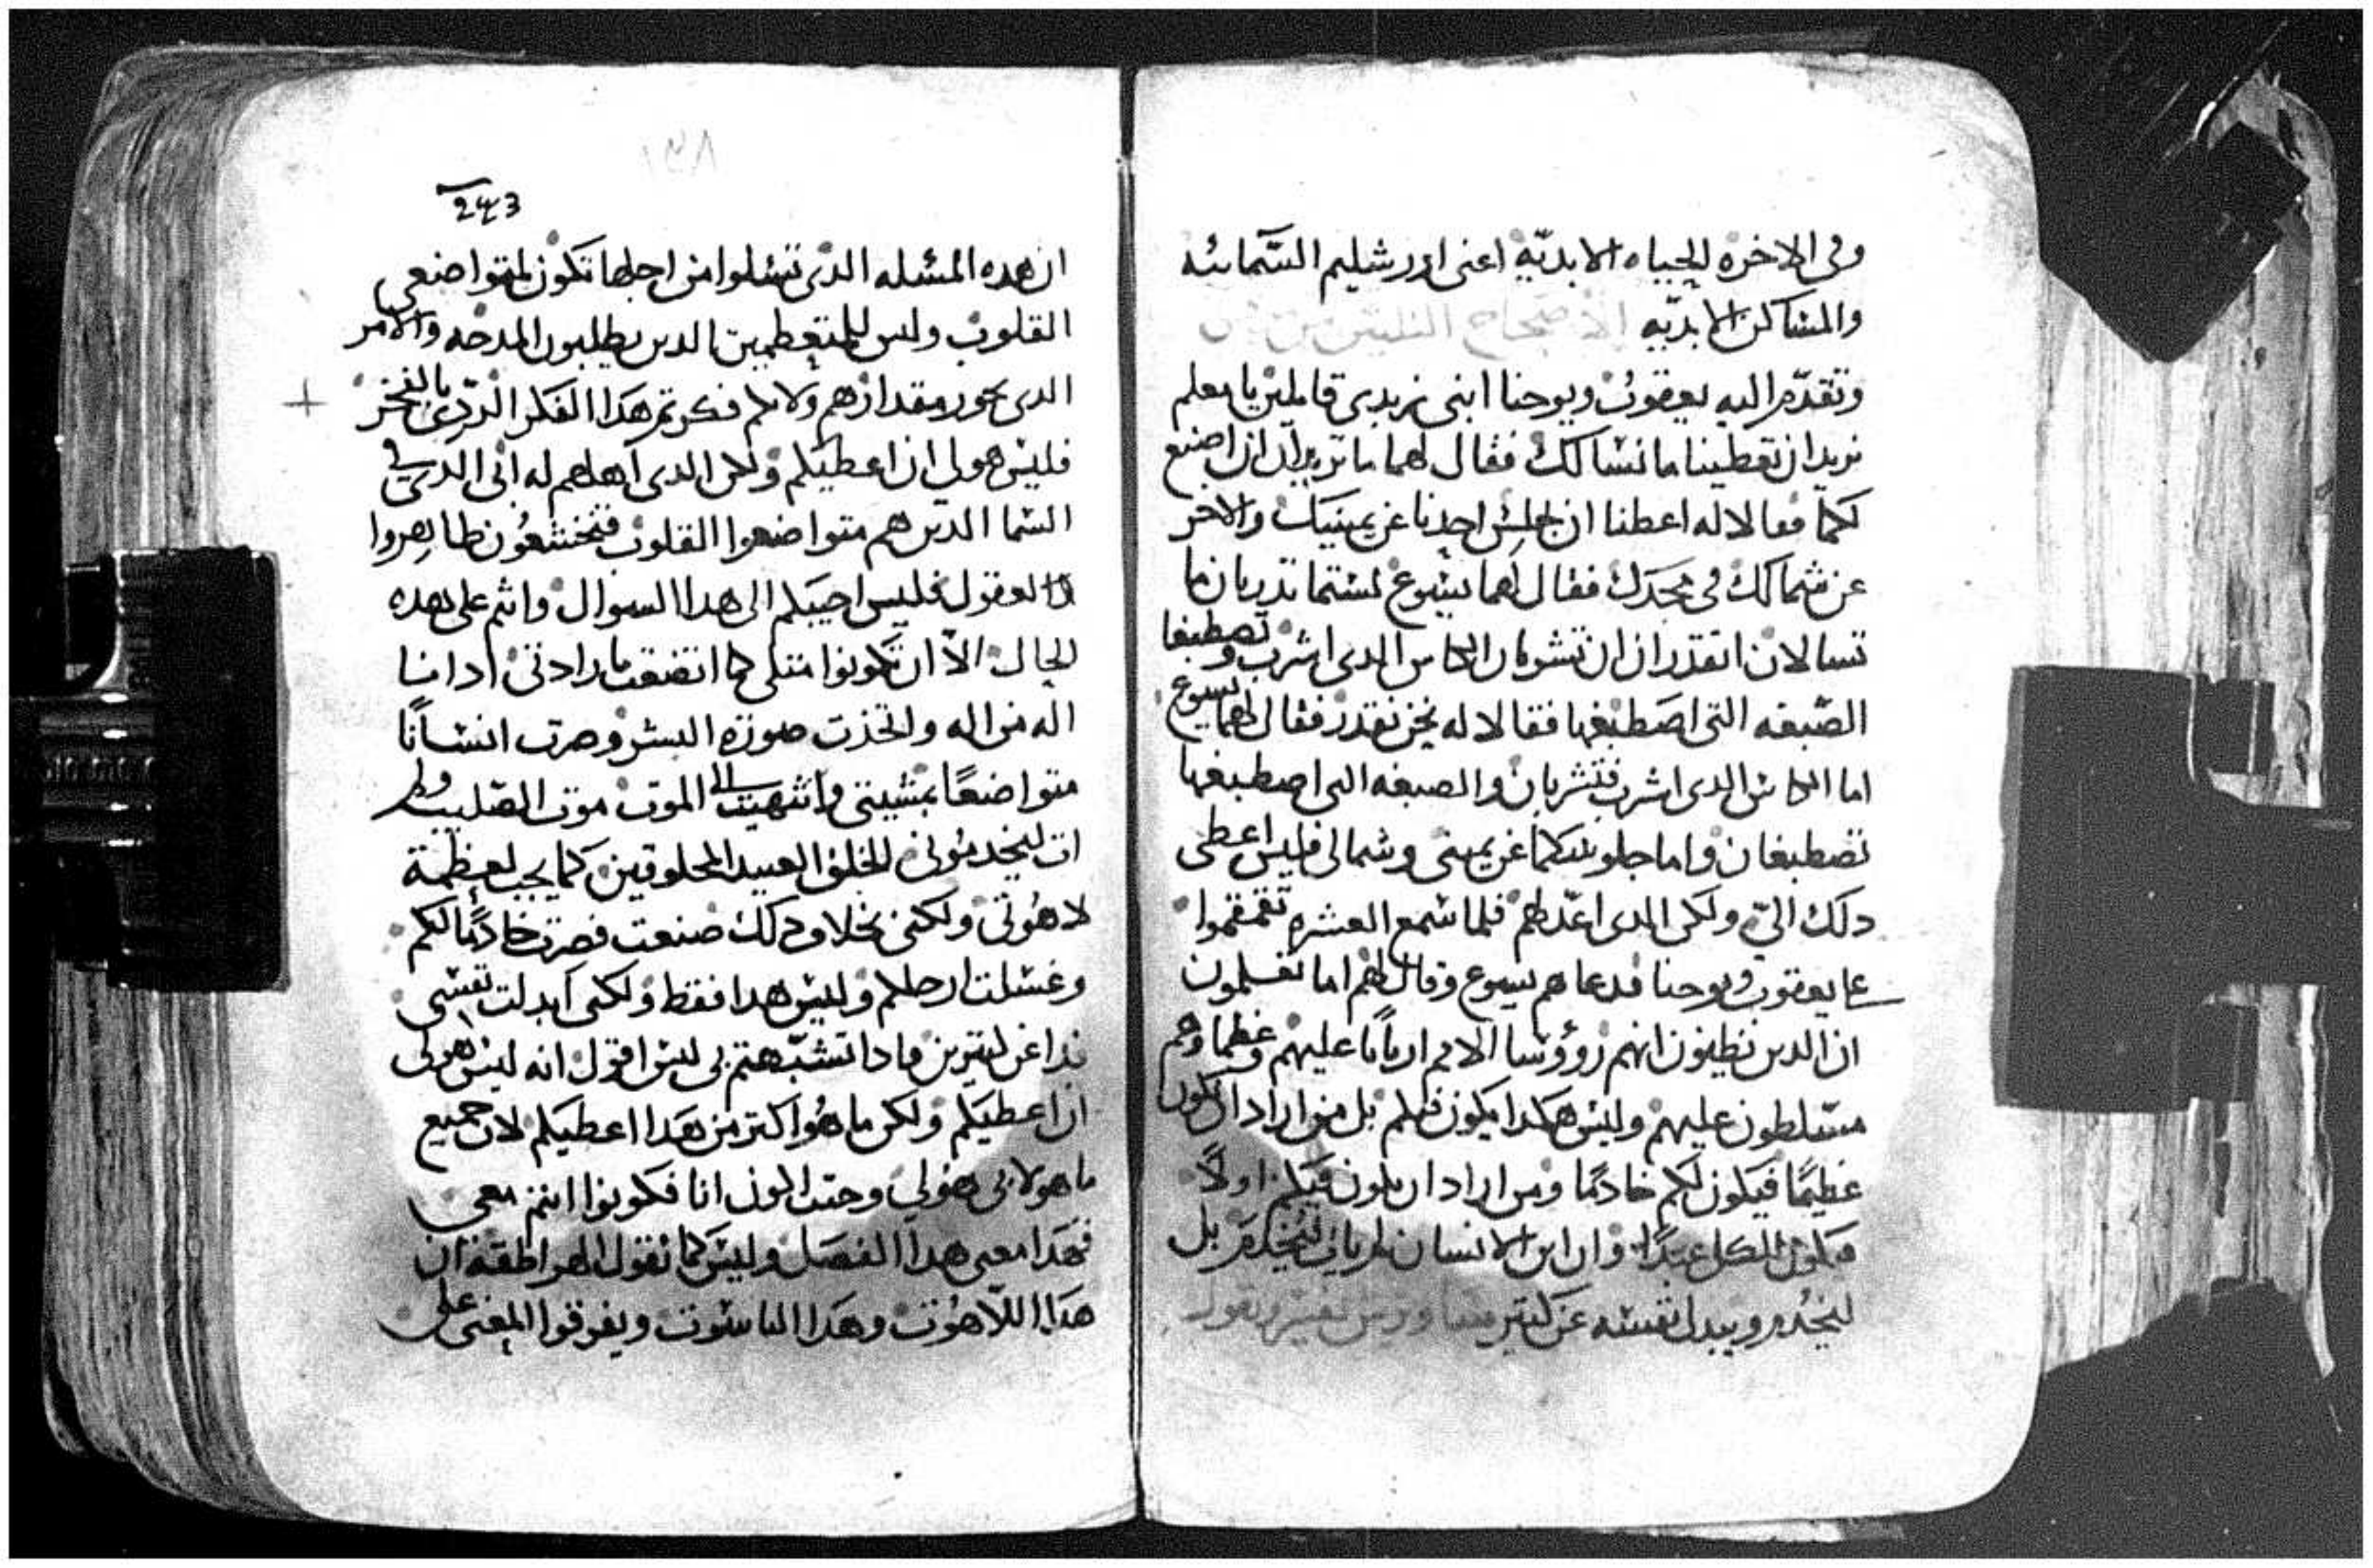 وفى الاخره للحياه الابديّه اعنى اورشليم السّمائيه
والمساكن الابديّه الاصحاح
وتقدّم اليه يعقوب ويوحنا ابنى زبدى قايلين يا معلم
نريد ان تعطينا ما نسالك فقال لهما ما تريدان ان اصنع
لكما فقالا له اعطنا ان يجلس احدنا عن يمينك والاخر
عن شمالك فى مجدك فقال لهما يسوع لستما تدريان ما
تسالان اتقدران ان تشربان الكاس الدى اشرب وتصطبغا
الصّبغه التى اصطبغها فقالا له نحن نقدر فقال لهما يسوع
اما الكاس الدى اشرب فتشربان والصبغه التى اصطبغها
تصطبغان واما جلوسكما عن يمينى وشمالى فليس اعطى
دلك الىّ ولكن الدى اعدّ لهم فلما سمع العشره تقمقموا
على يعقوب ويوحنا فدعاهم يسوع وقال لهم اما تعلمون
ان الدين يظنون انهم روؤسا الامم اربابا عليهم وعظماوهم
متسلطون عليهم وليس هكدا يكون فيكم بل من اراد ان يكون
عظيمًا فيكون لكم خادمًا ومن اراد ان يكون فيكم اولاً
فيكون للكل عبدًا وان ابن الانسان لم يات ليُخدَم بل
ليخدُم ويبدل نفسه عن كتيرين
243
ان هده المسله الدى تسلوا من اجلها تكون لمتواضعى
القلوب وليس للمتعظمين الدين يطلبون المدحه والامر
الدى يجوز مقدارهم ولانكم فكرتم هدا الفكر الردّى بالفخر
فليس هو لى ان اعطيكم ولكن الدى اهلهم له ابى الدى فى
السما الدين هم متواضعوا القلوب فتخشعون
العقول فليس اجيبكم الى هدا السوال وانتم على هده
الحال الاّ ان تكونوا متلى كما اتضعت بارادتى ادا انا
اله من اله واتخذت صورة البشر وصرت انسانًا
متواضعًا بمشيتى وانتهيت الى الموت موت الصليب ولم
ات ليخدمونى الخلق العبيد المخلوقين كما يجب لعظمة
لاهُوتى ولكننى بخلاف دلك صنعت فصرت خادمًا لكم
وغسلت ارجلكم وليس هدا فقط ولكنى ابدلت نفسى
فدا عن كتيرين فادا تشبّهتم بى ليس اقول انه ليس هو لى
ان اعطيكم ولكن ما هُو اكتر من هدا اعطيكم لان جميع
ما هو لابى هو لى وحيت اكون انا فكونوا انتم معى
فهدا معنى هدا الفصل وليس كما تقول الهراطقه ان
هدا اللاّهُوت وهدا الناسوت ويفرقوا المعنى على